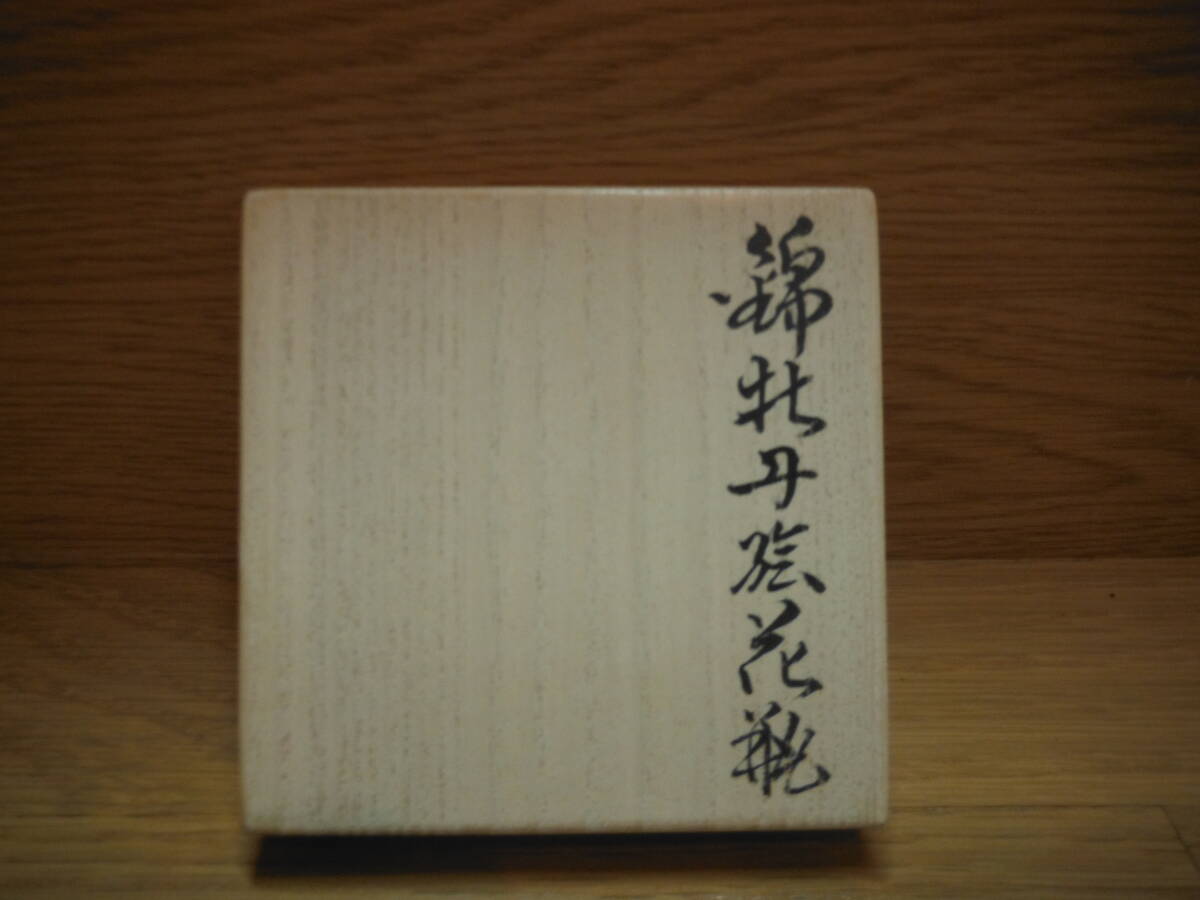 錦牡丹絵花瓶